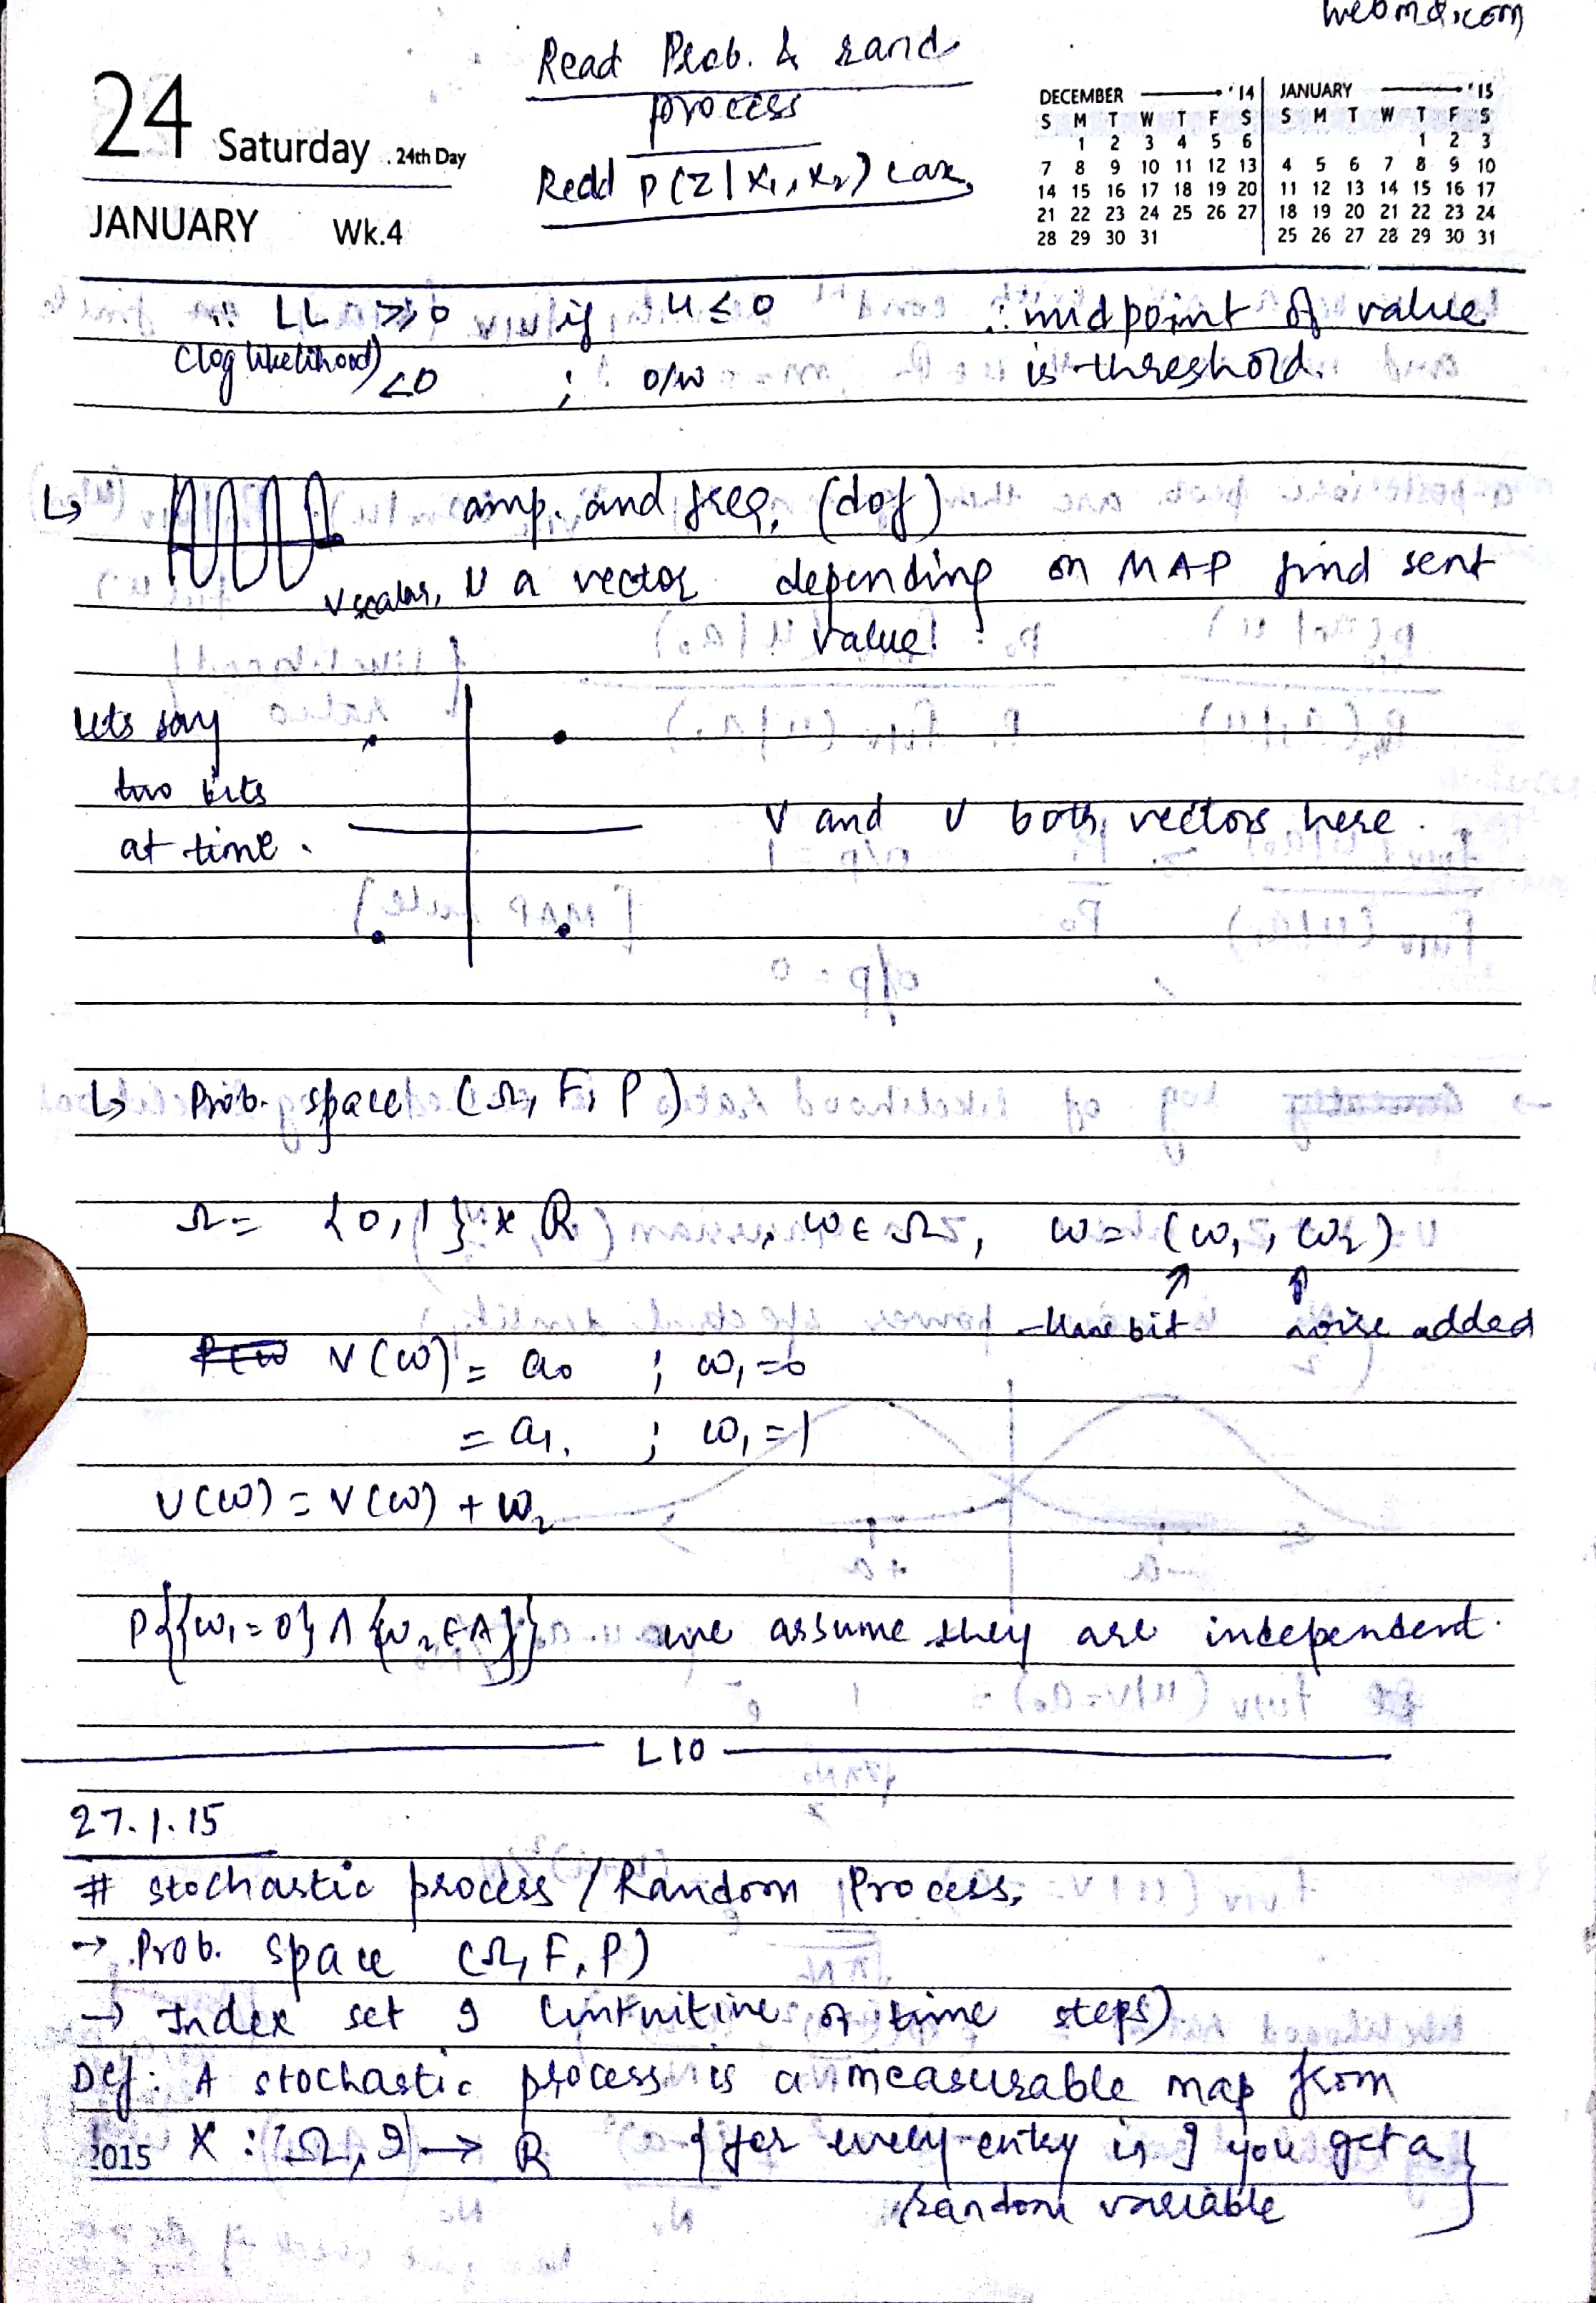 webmd.com
Read Prob. & rand
process
24 Saturday . 24th Day
JANUARY Wk.4
Read P(Z|X₁, X₂) can
DECEMBER '14
S M T W T F S
1 2 3 4 5 6
7 8 9 10 11 12 13
14 15 16 17 18 19 20
21 22 23 24 25 26 27
28 29 30 31
JANUARY '15
S M T W T F S
1 2 3
4 5 6 7 8 9 10
11 12 13 14 15 16 17
18 19 20 21 22 23 24
25 26 27 28 29 30 31
∴ LL ≥ 0 if u ≤ 0 ∴ midpoint of value
(log likelihood) <0 ; o/w is threshold.
↳ amp. and freq. (dof)
V scalar, U a vector depending on MAP find sent
value!
lets say
two bits
at time.
V and U both vectors here.
↳ Prob. space (Ω, F, P)
Ω = {0,1} × R, ω ∈ Ω, ω = (ω₁, ω₂)
bit noise added
V(ω) = a₀ ; ω₁=0
= a₁. ; ω₁=1
U(ω) = V(ω) + ω₂
P{{ω₁=0} ∩ {ω₂∈A}} we assume they are independent.
L10
27.1.15
# stochastic process / Random Process.
→ Prob. space (Ω, F, P)
→ Index set I (intuitive of time steps)
Def: A stochastic process is a measurable map from
2015 X : (Ω, I) → R {for every entry in I you get a
random variable}